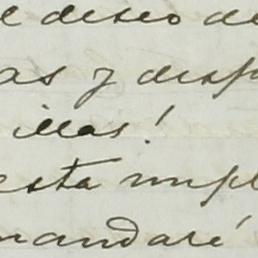 el deseo de
as y desp
illas!
esta impl
mandaré